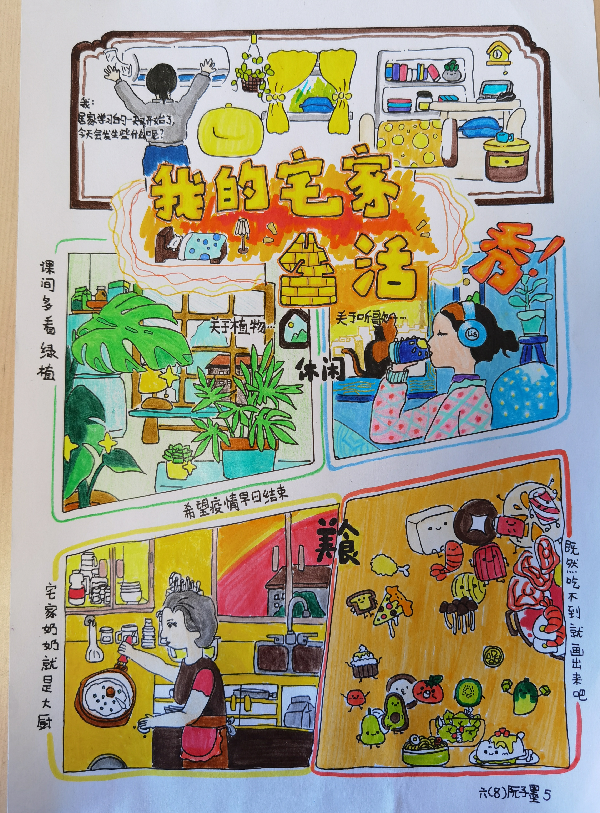 我:
居家学习的一天又开始了,
今天会发生些什么呢?
我的宅家
生活
秀!
课间多看绿植
关于植物…
关于听歌…
休闲
希望疫情早日结束
美食
宅家奶奶就是大厨
既然吃不到就画出来吧
六(8)阮子墨 5